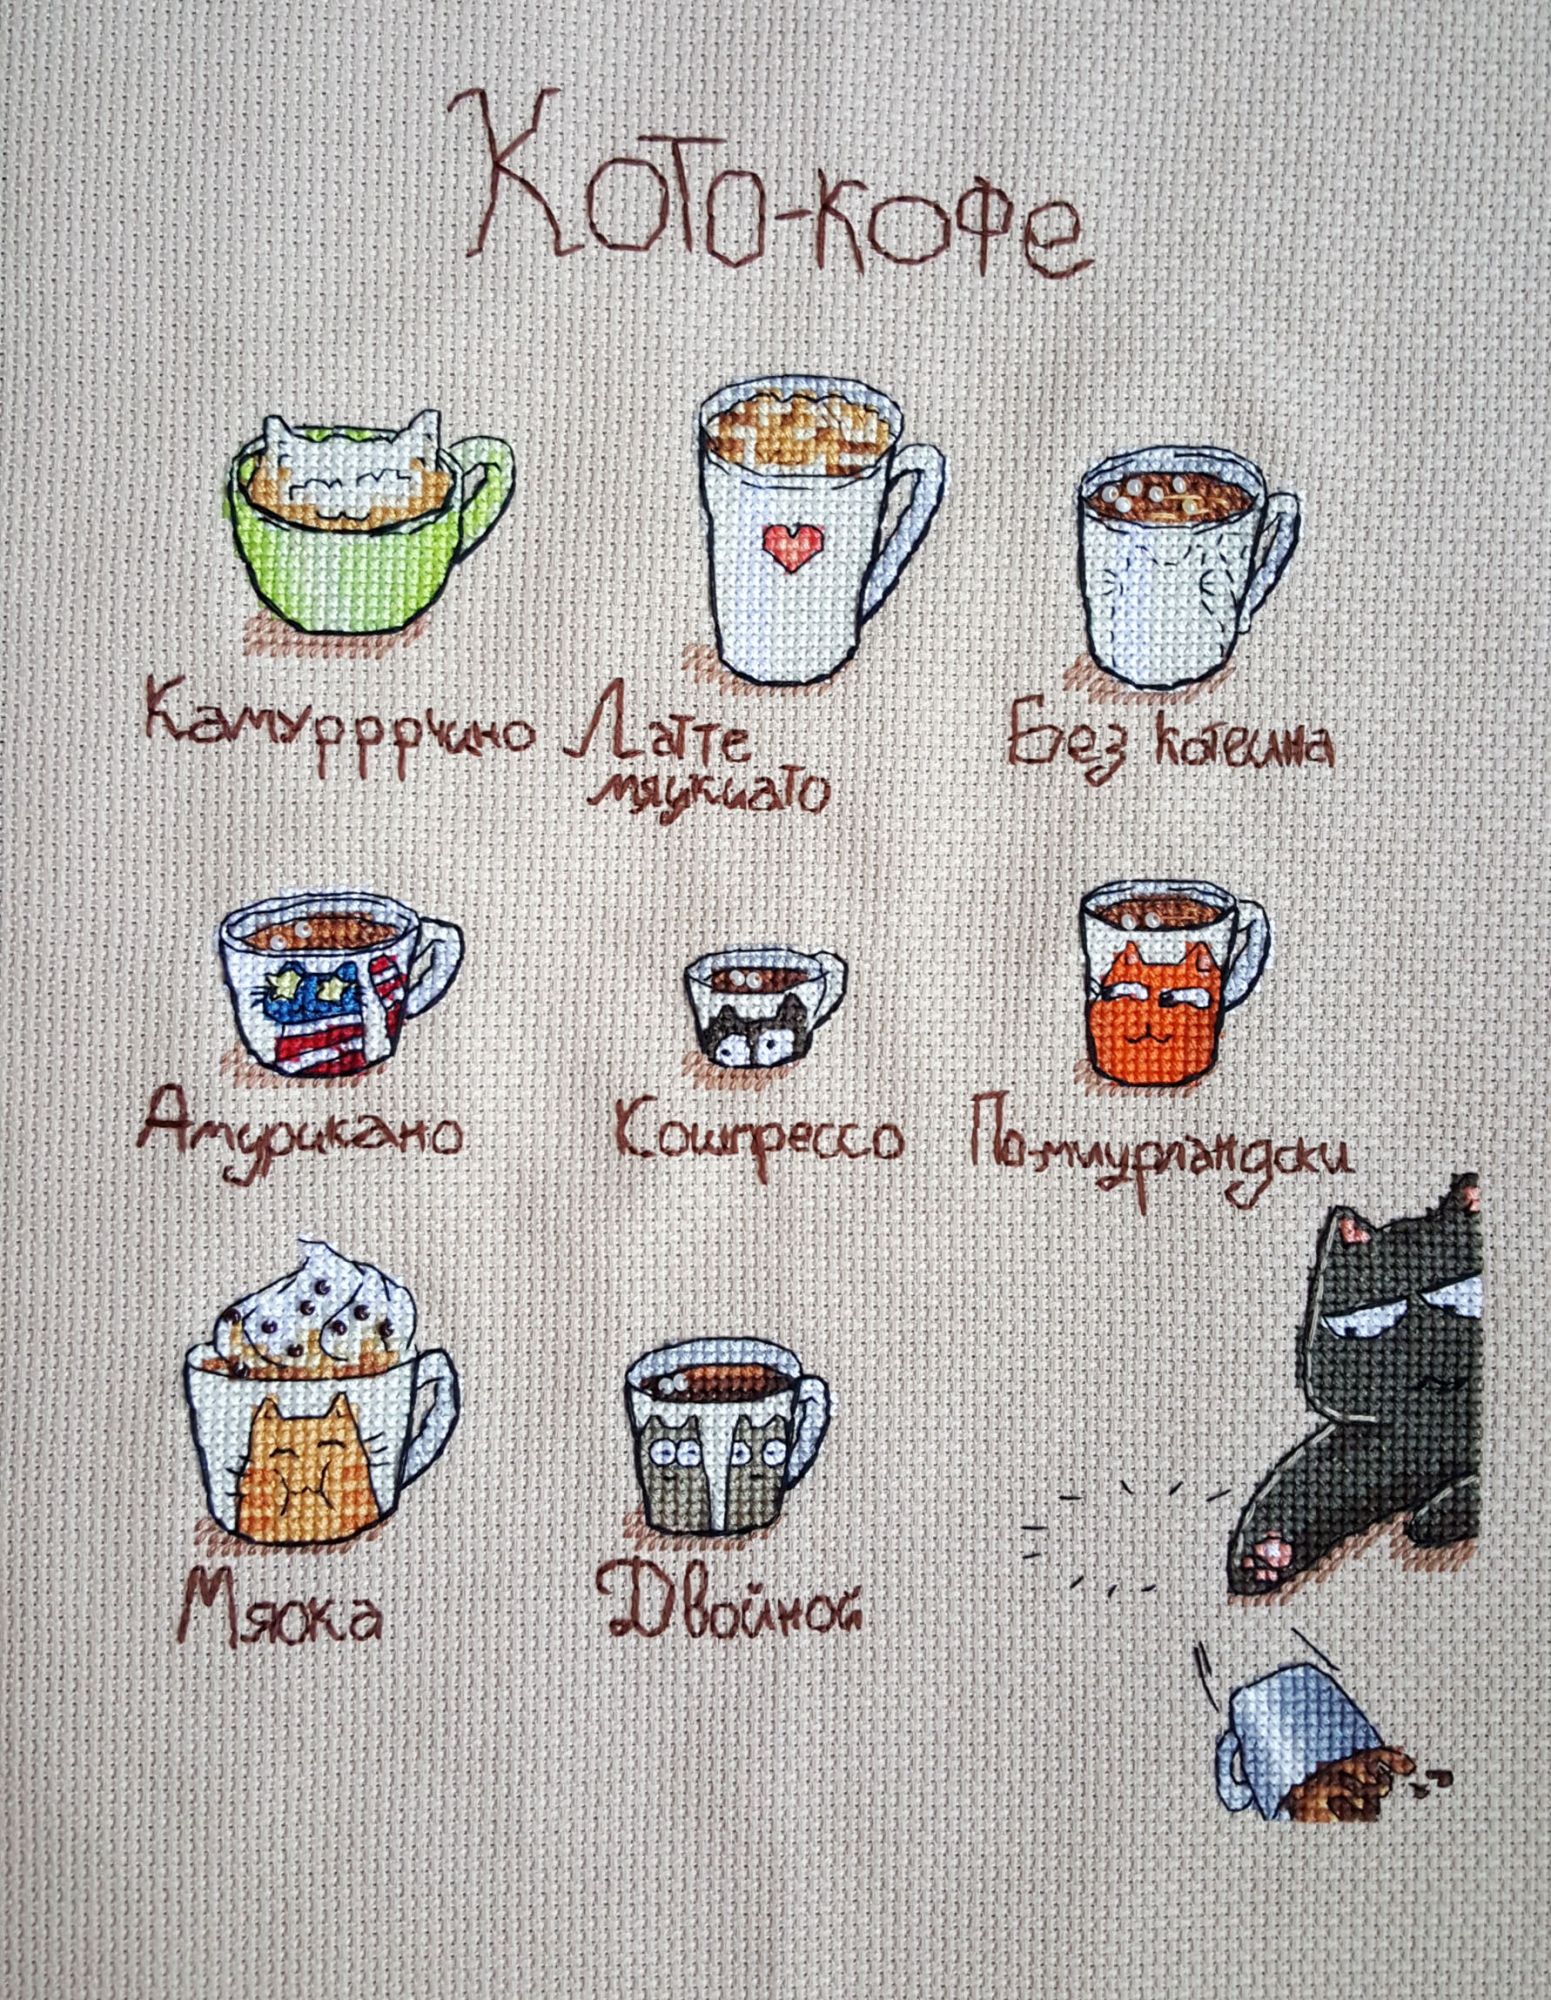 Кото-кофе
Камурррчино
Латте
мяукиато
Без котеина
Амурикано
Кошпрессо
По-миурландски
Мяока
Двойной